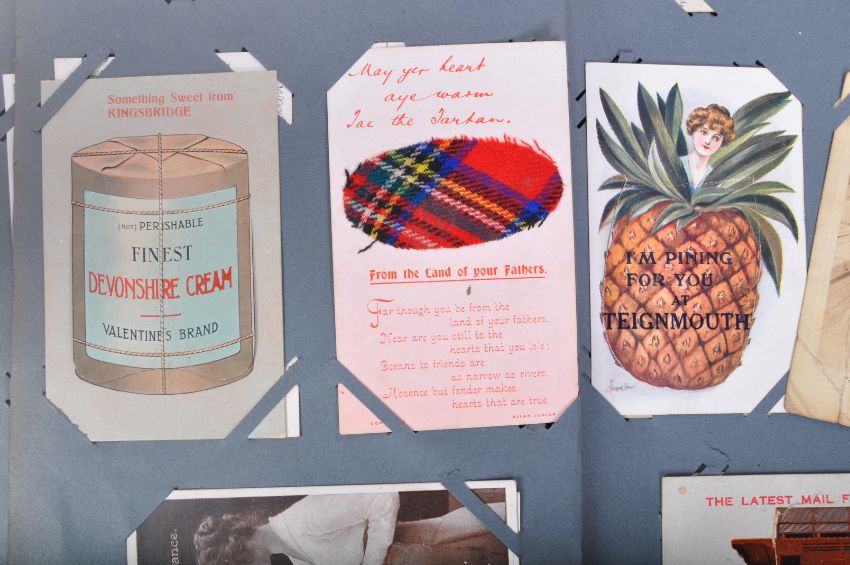 Something Sweet from
KINGSBRIDGE
(NOT) PERISHABLE
FINEST
DEVONSHIRE CREAM
VALENTINE'S BRAND
May yer heart
aye warm
Tae the Tartan.
From the Land of your Fathers.
Far though you be from the
land of your fathers,
Near are you still to the
hearts that you love;
Oceans to friends are
as narrow as rivers,
Absence but fonder makes
hearts that are true.
ALLAN JUNIOR
I'M PINING
FOR YOU
AT
TEIGNMOUTH
THE LATEST MAIL F